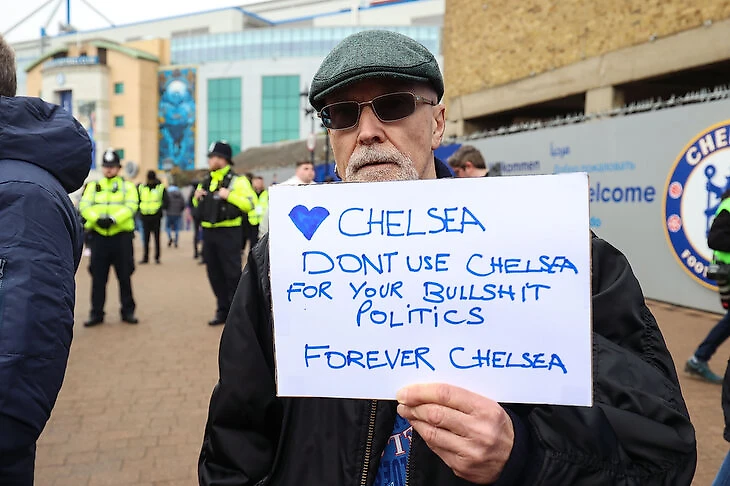 ♥ CHELSEA
DONT USE CHELSEA
FOR YOUR BULLSHIT
POLITICS
FOREVER CHELSEA
Welcome
CHEL